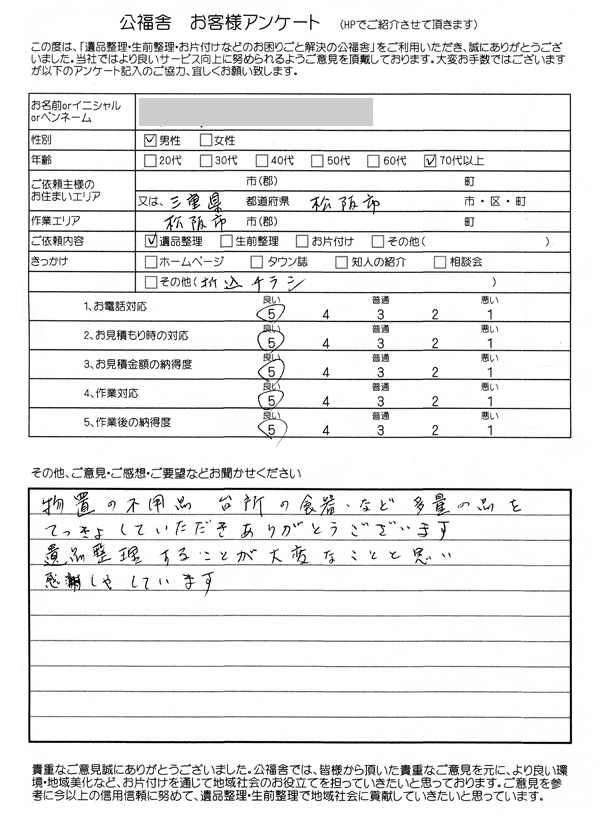 公福舎 お客様アンケート (HPでご紹介させて頂きます)
この度は、「遺品整理・生前整理・お片付けなどのお困りごと解決の公福舎」をご利用いただき、誠にありがとうござ
いました。当社ではより良いサービス向上に努められるようご意見を頂戴しております。大変お手数ではございます
が以下のアンケート記入のご協力、宜しくお願い致します。
お名前orイニシャル
orペンネーム
性別 ☑男性 □女性
年齢 □20代 □30代 □40代 □50代 □60代 ☑70代以上
ご依頼主様の
お住まいエリア
市(郡) 町
又は、三重県 都道府県 松阪市 市・区・町
作業エリア 松阪市 市(郡) 町
ご依頼内容 ☑遺品整理 □生前整理 □お片付け □その他( )
きっかけ □ホームページ □タウン誌 □知人の紹介 □相談会
□その他(折込チラシ )
良い 普通 悪い
1、お電話対応 5 4 3 2 1
良い 普通 悪い
2、お見積もり時の対応 5 4 3 2 1
良い 普通 悪い
3、お見積金額の納得度 5 4 3 2 1
良い 普通 悪い
4、作業対応 5 4 3 2 1
良い 普通 悪い
5、作業後の納得度 5 4 3 2 1
その他、ご意見・ご感想・ご要望などお聞かせください
物置の不用品 台所の食器・など多量の品を
てっきょしていただきありがとうございます
遺品整理することが大変なことと思い
感謝しています
貴重なご意見誠にありがとうございました。公福舎では、皆様から頂いた貴重なご意見を元に、より良い環
境・地域美化など、お片付けを通じて地域社会のお役立てを担っていきたいと思っております。ご意見を参
考に今以上の信用信頼に努めて、遺品整理・生前整理で地域社会に貢献していきたいと思っています。